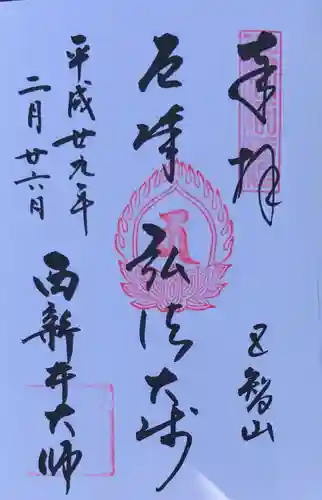 奉拝
五智山
厄除弘法大師
平成廿九年
二月廿六日
西新井大師